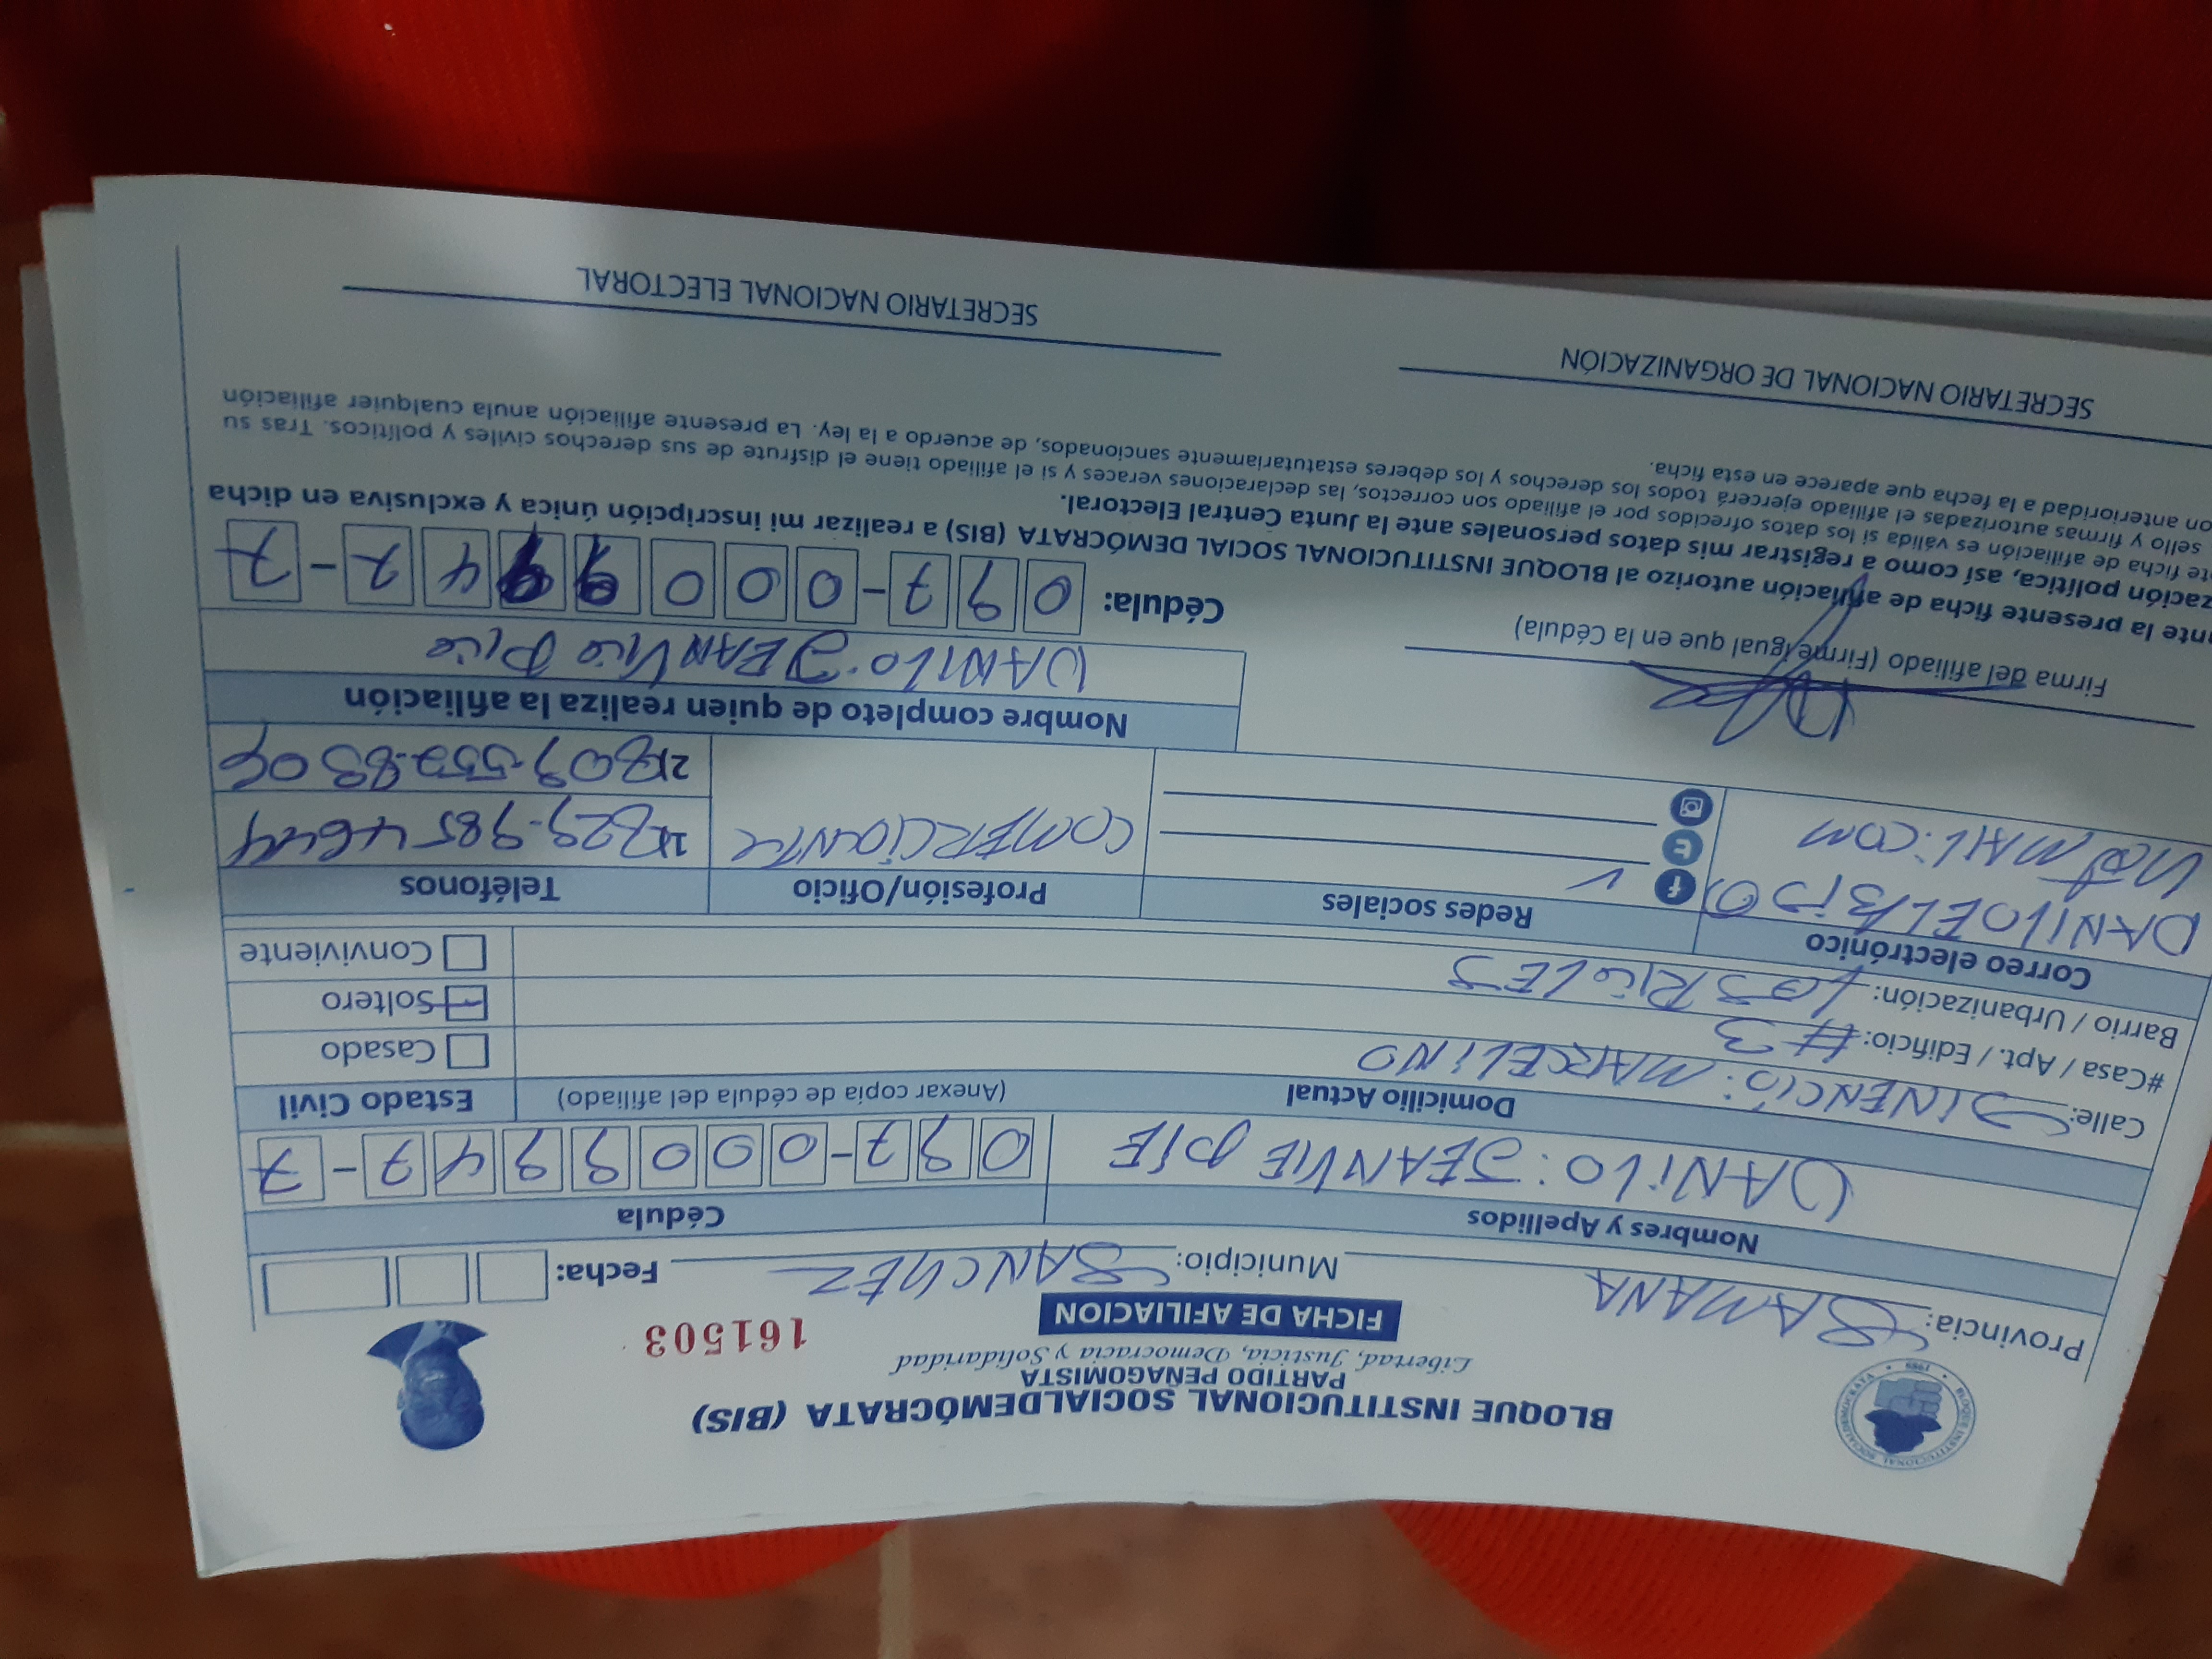 BLOQUE INSTITUCIONAL SOCIALDEMÓCRATA (BIS)
PARTIDO PEÑAGOMISTA
Libertad, Justicia, Democracia y Solidaridad
FICHA DE AFILIACION
161503
Provincia: SAMANA Municipio: SANCHEZ Fecha:
Nombres y Apellidos Cédula
DANILO: JEANVIE PIE 097-0009947-7
Domicilio Actual (Anexar copia de cédula del afiliado) Estado Civil
Calle: SINENCIO: MARCELINO
Casado
#Casa / Apt. / Edificio: #3
Soltero
Barrio / Urbanización: LOS RICOLES
Conviviente
Correo electrónico Redes sociales Profesión/Oficio Teléfonos
DANILOELBIS@
HOTMAIL.COM
COMERCIANTE
1) 829-985 4644
2) 809-552-8306
Nombre completo de quien realiza la afiliación
DANILO JEANVIE PIE
Firma del afiliado (Firme igual que en la Cédula)
Cédula: 097-0009947-7
nte la presente ficha de afiliación autorizo al BLOQUE INSTITUCIONAL SOCIAL DEMÓCRATA (BIS) a realizar mi inscripción única y exclusiva en dicha
ización política, así como a registrar mis datos personales ante la Junta Central Electoral.
te ficha de afiliación es válida si los datos ofrecidos por el afiliado son correctos, las declaraciones veraces y si el afiliado tiene el disfrute de sus derechos civiles y políticos. Tras su
sello y firmas autorizadas el afiliado ejercerá todos los derechos y los deberes estatutariamente sancionados, de acuerdo a la ley. La presente afiliación anula cualquier afiliación
on anterioridad a la fecha que aparece en esta ficha.
SECRETARIO NACIONAL DE ORGANIZACIÓN SECRETARIO NACIONAL ELECTORAL